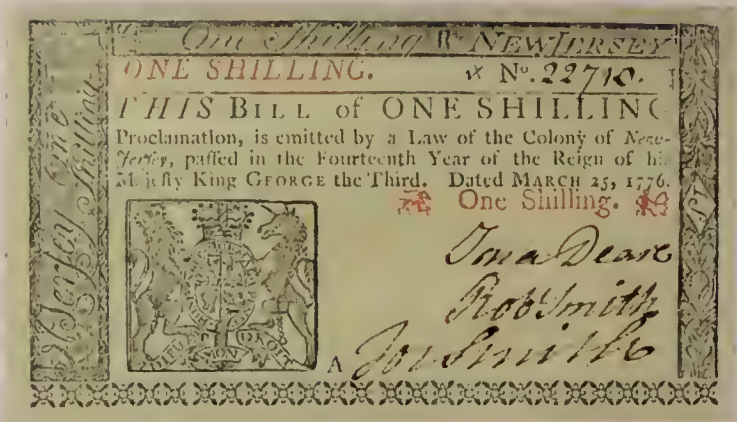 One Shilling NEW JERSEY
ONE SHILLING. No. 22718.
THIS BILL of ONE SHILLING
Proclamation, is emitted by a Law of the Colony of New-
Jersey, paſſed in the Fourteenth Year of the Reign of his
Majeſty King GEORGE the Third. Dated MARCH 25, 1776.
One Shilling.
Jona Deare
Robt Smith
Jos Smith
A
N Jerſey One
Shilling
DIEU ET MON DROIT